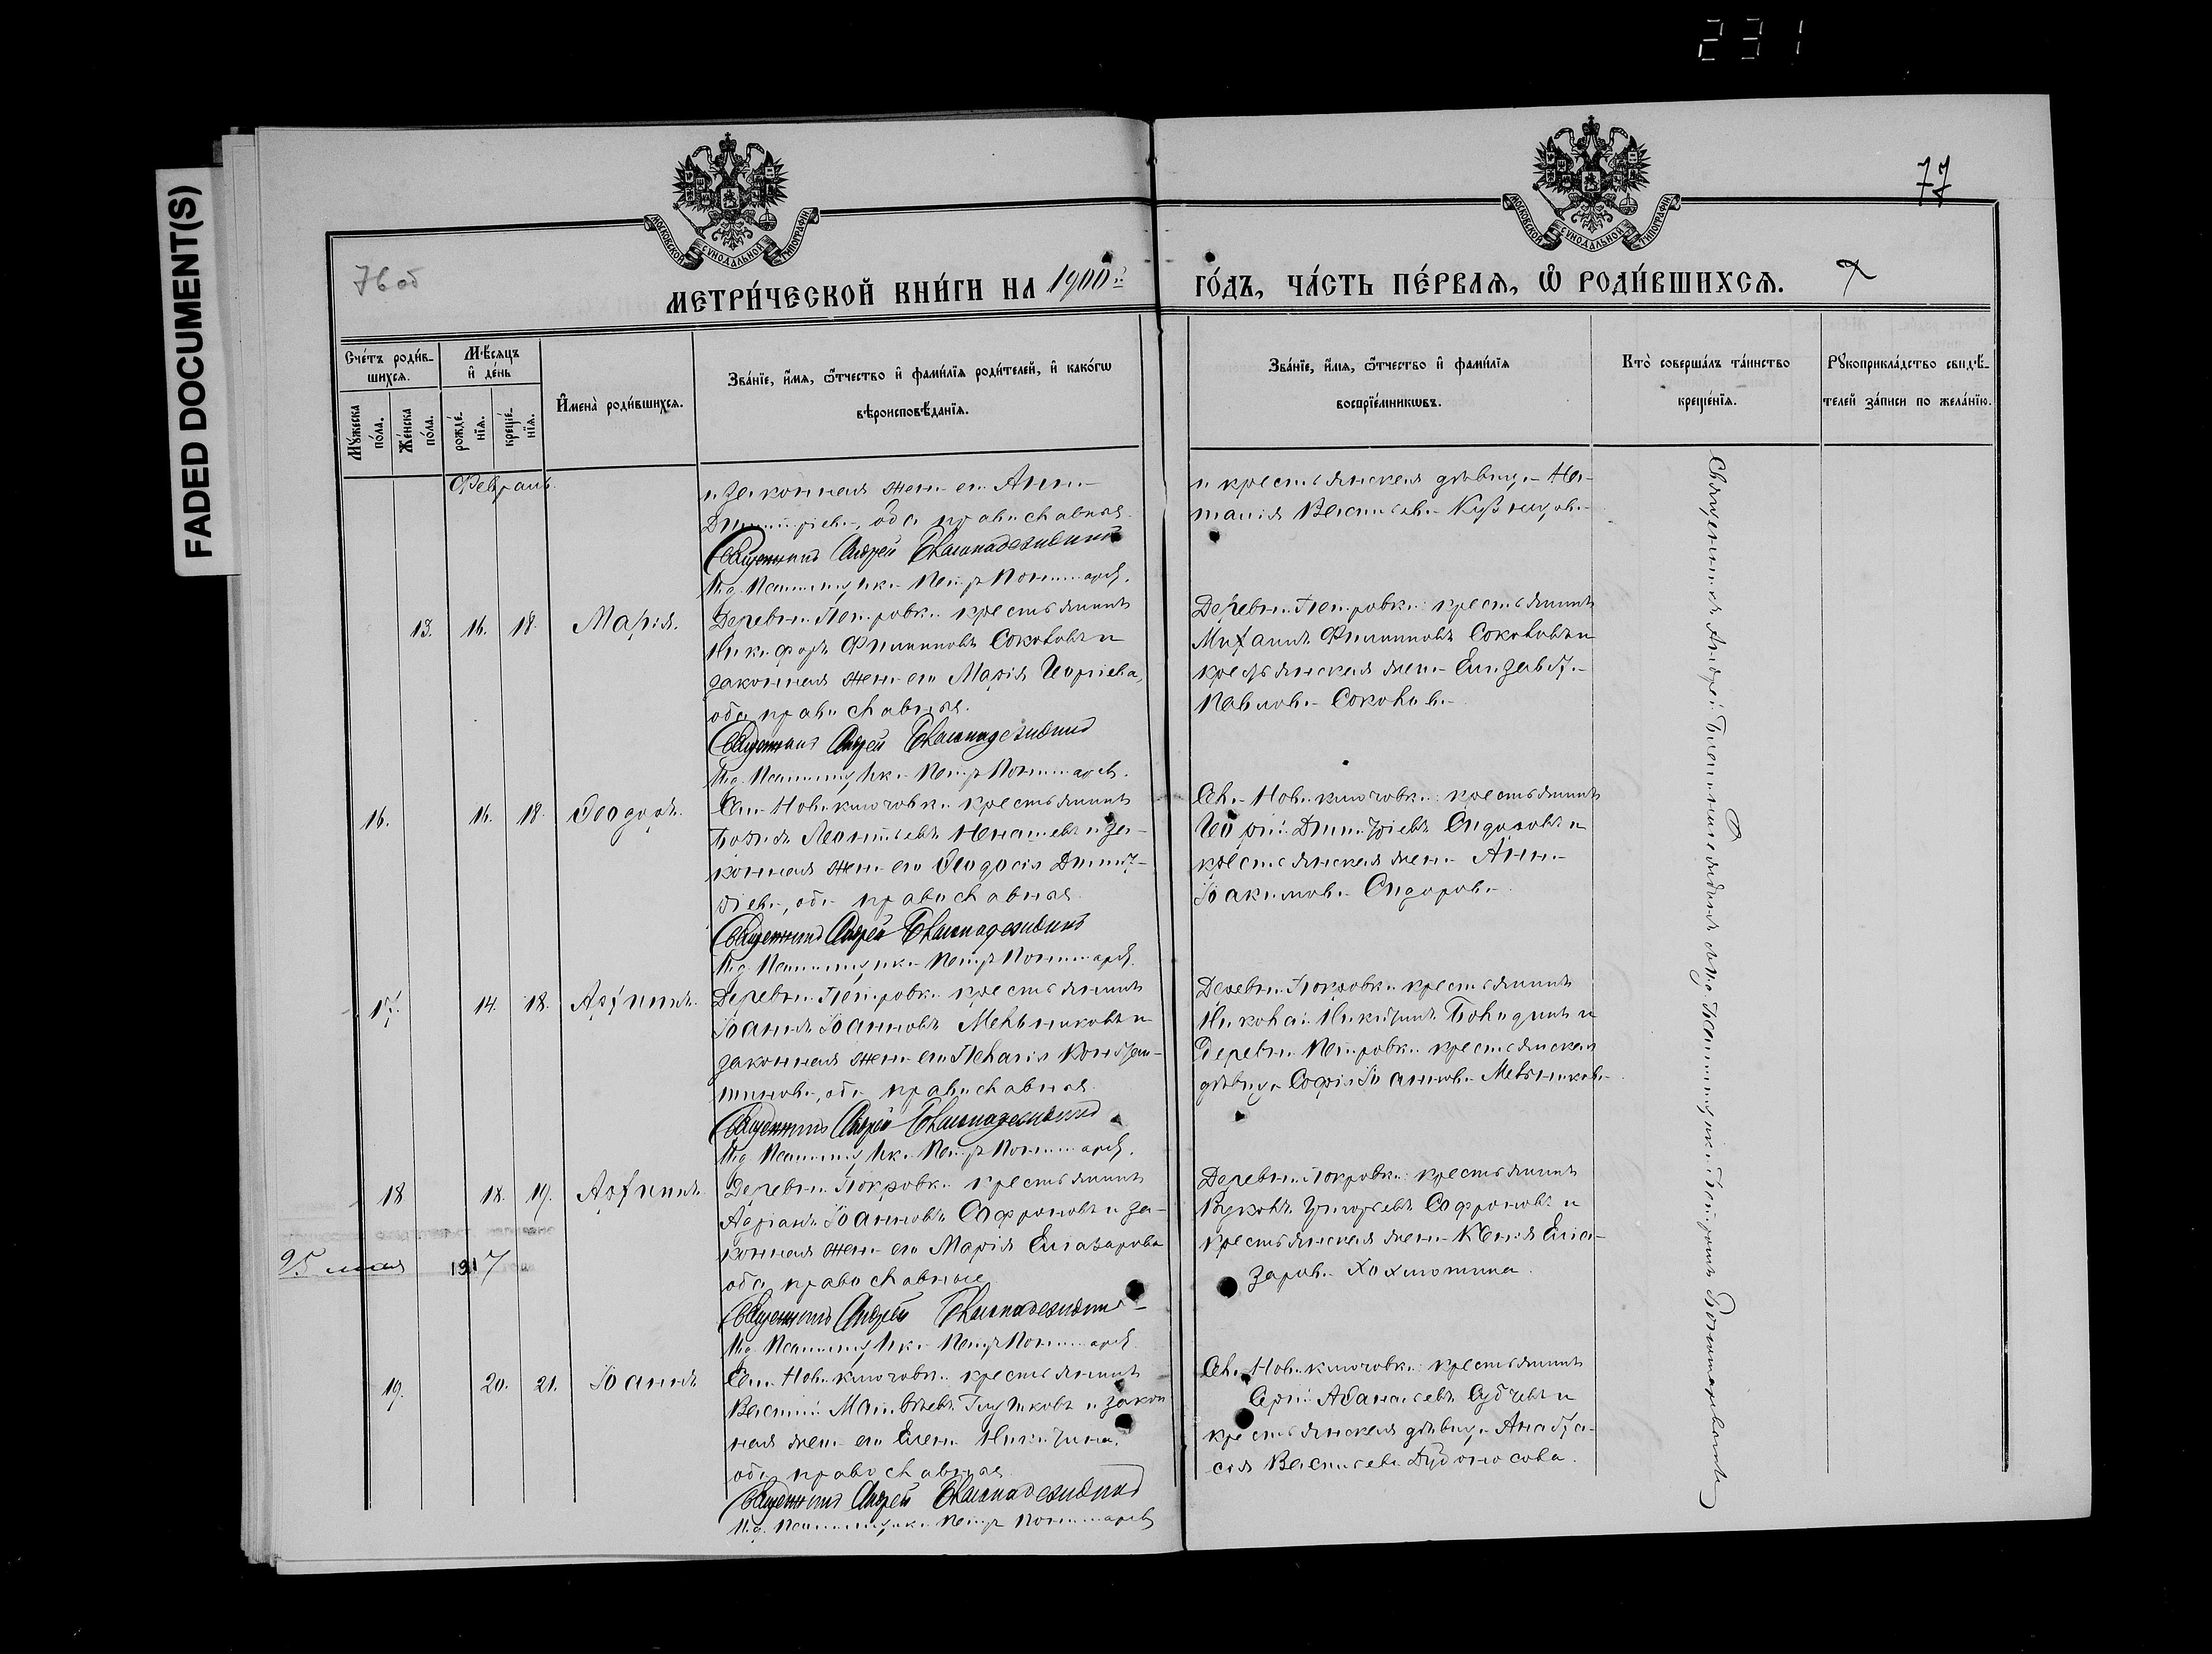 231
FADED DOCUMENT(S)
МОСКОВСКОЙ СѴНОДАЛЬНОЙ ТИПОГРАФІИ
МОСКОВСКОЙ СѴНОДАЛЬНОЙ ТИПОГРАФІИ
77
76 об
МЕТРИ́ЧЕСКОЙ КНИ́ГИ НА 1900й ГО́ДЪ, ЧА́СТЬ ПЕ́РВАЯ, Ѡ РОДИ́ВШИХСЯ.
Сче́тъ роди́в-
шихся.
Мꙋ́жеска по́ла.
Же́нска по́ла.
Мѣ́сяцъ
и де́нь
рожде́-
нїя.
креще́-
нїя.
Имена̀ роди́вшихся.
Зва́нїе, и́мя, ѻ́тчество и фами́лїя роди́телей, и како́гѡ
вѣроисповѣ́данїя.
Зва́нїе, и́мя, ѻ́тчество и фами́лїя
воспрїе́мникѡвъ.
Кто̀ соверша́лъ та́инство
креще́нїя.
Рꙋкоприкла́дство свидѣ́-
телей за́писи по жела́нїю.
Февраль
и законная жена его Анна
Дмитріева, оба православные
Священникъ Андрей
И.д. Псаломщика Петръ Пономаревъ.
и крестьянская дѣвица На-
талія Васильева Кузнецова
13. 16. 18. Марія.
Деревни Петровки крестьянинъ
Никифоръ Филипповъ Соколовъ и
законная жена его Марія Георгіева,
оба православные.
Священникъ Андрей
И.д. Псаломщика Петръ Пономаревъ.
Деревни Петровки крестьянинъ
Михаилъ Филипповъ Соколовъ и
крестьянская жена Елизавета
Павлова Соколова
16. 16. 18. Ѳеодоръ.
Села Новоключовки крестьянинъ
Леонтьевъ Ненашевъ и за-
конная жена его Ѳеодосія Дмит-
ріева, оба православные
Священникъ Андрей
И.д. Псаломщика Петръ Пономаревъ.
Села Новоключовки крестьянинъ
Георгій Димитріевъ Сидоровъ и
крестьянская жена Анна
Іоакимова Сидорова
17. 14. 18. Архипъ.
Деревни Петровки крестьянинъ
Іоаннъ Іоанновъ Мельниковъ и
законная жена его Пелагія Констан-
тинова, оба православные
Священникъ Андрей
И.д. Псаломщика Петръ Пономаревъ.
Деревни Покровки крестьянинъ
Николай Никитинъ и
Деревни Петровки крестьянская
дѣвица Софія Іоаннова Мельникова
18 18. 19. Архипъ.
Деревни Покровки крестьянинъ
Адріанъ Іоанновъ Софроновъ и за-
конная жена его Марія Елеазарова
оба православные
Священникъ Андрей
И.д. Псаломщика Петръ Пономаревъ
Деревни Покровки крестьянинъ
Григорьевъ Софроновъ и
крестьянская жена Ксенія Елеа-
зарова
25 мая 1917
19. 20. 21. Іоаннъ
Села Новоключовки крестьянинъ
Василій Матвѣевъ Глушковъ и закон
ная жена его Елена Никитина,
оба православные
Священникъ Андрей
И.д. Псаломщика Петръ Пономаревъ
Села Новоключовки крестьянинъ
Сергій Аѳанасьевъ и
крестьянская дѣвица Анаста-
сія Васильева
Священникъ Андрей съ и.д. Псаломщика Петромъ Пономаревымъ